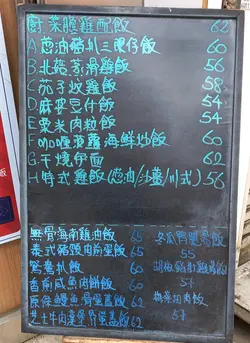 菜膽雞配飯 62
A. 葱油豬扒三飯 60
B. 北菇蒸滑雞飯 56
C. 茄子炆雞飯 58
D. 麻婆豆付飯 54
E. 粟米肉粒飯 54
F. 咖喱海鮮炒飯 60
G. 干燒伊面 62
H. 特式雞飯(葱油/沙薑/川式) 56
無骨海南雞油飯 65
泰式豬頸肉煎蛋飯 65
鴛鴦扒飯 60
香煎咸魚肉餅飯 60
原條鰻魚滑蛋蓋飯 62
芝士牛肉滑蛋蓋飯 62
飯
55
胡椒豬雞飯
57
肉飯
57